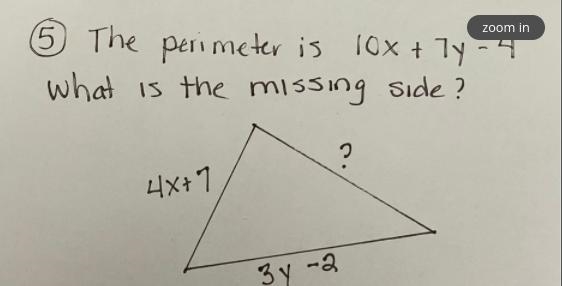 zoom in
⑤ The perimeter is 10x + 7y - 4
What is the missing side?
?
4x+7
3y -2